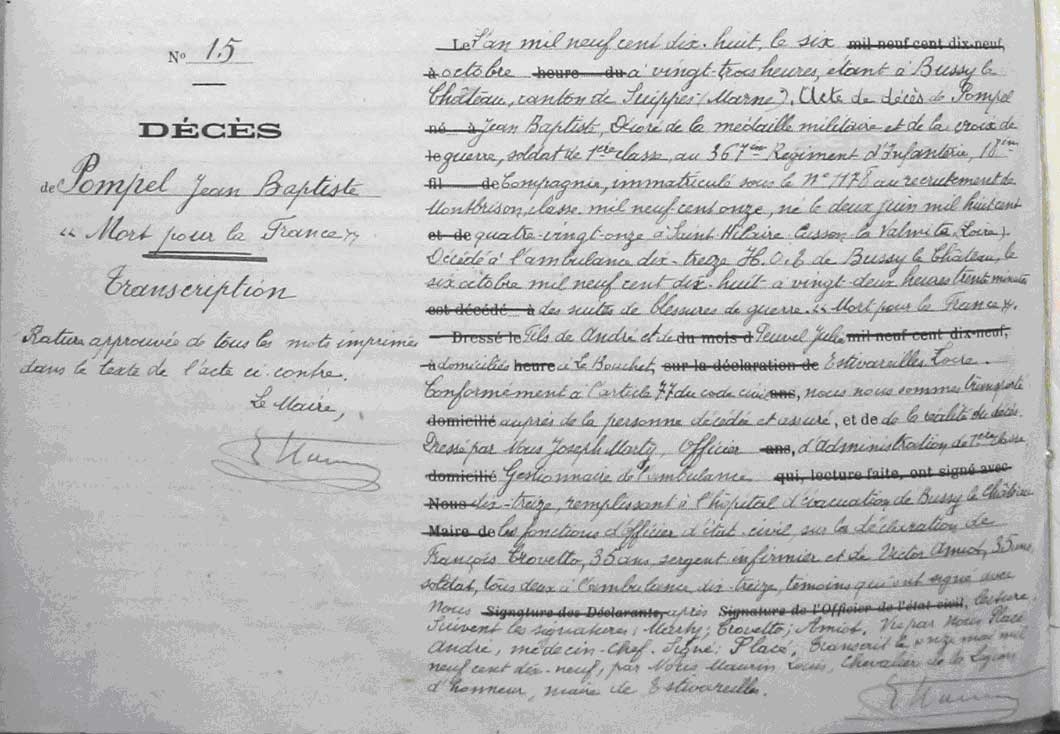 N° 15
DÉCÈS
de Pompel Jean Baptiste
"Mort pour la France"
Transcription
Rature approuvée de tous les mots imprimés
dans le texte de l'acte ci contre.
Le Maire,
Le L'an mil neuf cent dix-huit, le six mil neuf cent dix-neuf,
à octobre heure du à vingt-trois heures, étant à Bussy le
Château, canton de Suippes (Marne). Acte de décès de Pompel
né à Jean Baptiste, Décoré de la médaille militaire et de la croix de
le guerre, soldat de 1ère classe, au 367em Régiment d'Infanterie, 18em
fil de Compagnie, immatriculé sous le N° 1178 au recrutement de
Montbrison, classe mil neuf cent onze, né le deux juin mil huit cent
et de quatre-vingt-onze à Saint Hilaire Cusson la Valmite (Loire).
Décédé à l'ambulance dix-treize H.O.E. de Bussy le Château, le
six octobre mil neuf cent dix-huit à vingt-deux heures trente minutes
est décédé à des suites de blessures de guerre. "Mort pour la France".
Dressé le Fils de André et de du mois d Peuvel Julie mil neuf cent dix-neuf,
à domiciliés heure à Le Bouchet, sur la déclaration de Estivareilles Loire.
Conformément à l'article 77 du code civil ans, nous nous sommes transporté
domicilié auprès de la personne décédée et assuré, et de de la réalité du décès.
Dressé par Nous Joseph Marty, Officier ans, d'Administration de 1ere classe,
domicilié Gestionnaire de l'ambulance qui, lecture faite, ont signé avec
Nous dix-treize, remplissant à l'hôpital d'évacuation de Bussy le Château
Maire de les fonctions d'Officier d'état-civil, sur la déclaration de
François Trovetto, 35 ans, sergent infirmier et de Victor Amiot, 35 ans,
soldat, tous deux à l'ambulance dix-treize, témoins qui ont signé avec
Nous Signature des Déclarants, après Signature de l'Officier de l'état civil, lecture,
Suivent les signatures: Marty; Trovetto; Amiot. Vu par Nous Placé
André, médecin-chef. Signé: Placé. Transcrit le onze mai mil
neuf cent dix-neuf, par Nous Maurin Louis, Chevalier de la Légion
d'honneur, maire de Estivareilles.